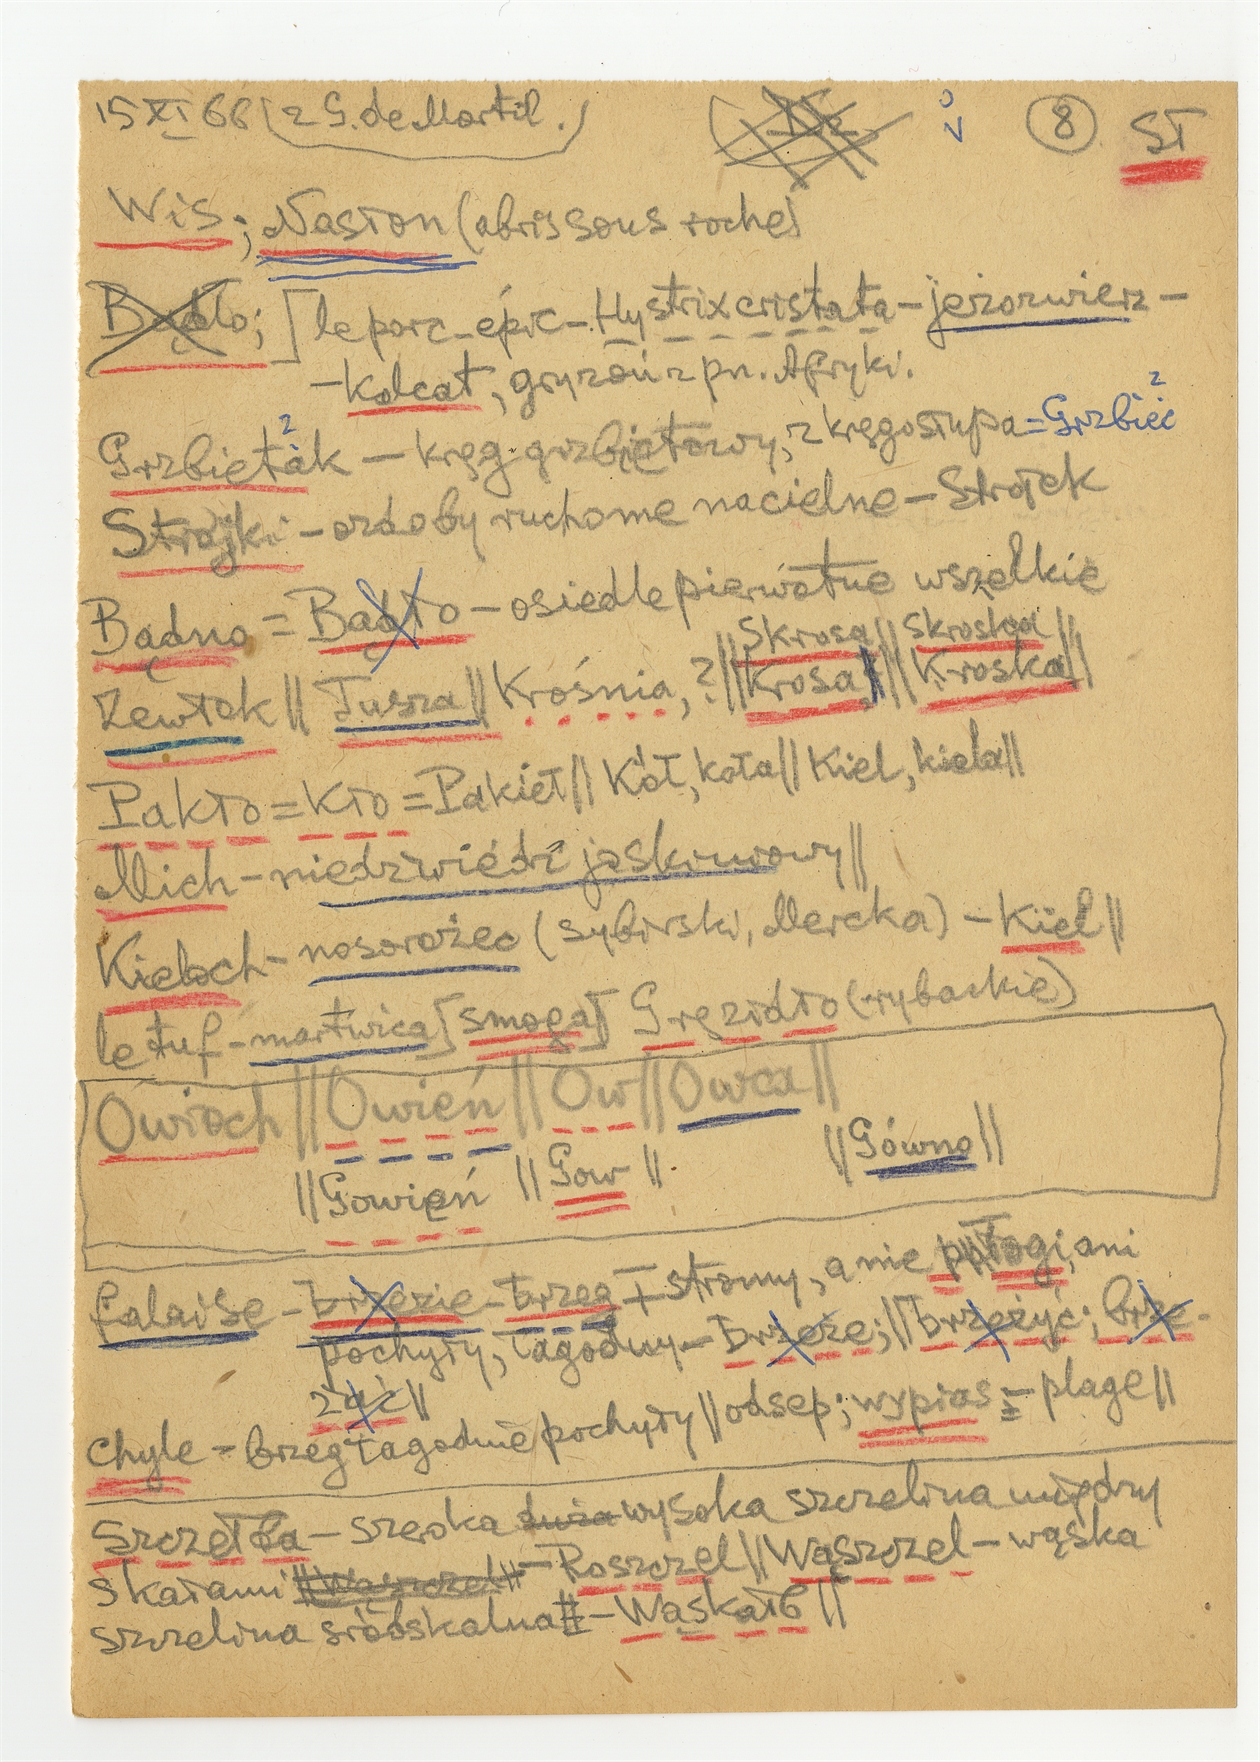 15 XI 66 (z G. de Mortil.) 8 ST
Wis; Nasłon (abris sous roche)
Bądło; [le porc-épic - Hystrix cristata - jeżozwierz -
- Kolcat, gryzoń z pn. Afryki.
Grzbietak - kręg grzbietowy, z kręgosłupa = Grzbieć
Strojki - ozdoby ruchome nacielne - Strojek
Bądno = Bądło - osiedle pierwotne wszelkie
Skrosa || Skroska ||
Zewłok || Tusza || Krośnia, ? || Krosa || Kroska ||
Pakło = Kło = Pakieł || Kół, koła || Kieł, kieła ||
Mich - niedźwiedź jaskiniowy ||
Kieloch - nosorożec (sybirski, Mercka) - Kiel ||
le tuf - martwica [smoga] Gręzidło (rybackie)
Owioch || Owień || Ow || Owca ||
|| Gowień || Gow || || Gówno ||
falaise - brzezie - brzeg stromy, a nie połogi, ani
pochyły, łagodny - brzeże; || brzeżyć; brze-
żać ||
chyle = brzeg łagodnie pochyły || odsep; wypias = plage ||
Szczełba - szeroka duża wysoka szczelina między
skałami || Wąszczel || - Roszczel || Wąszczel - wąska
szczelina śródskalna - Wąskałb ||